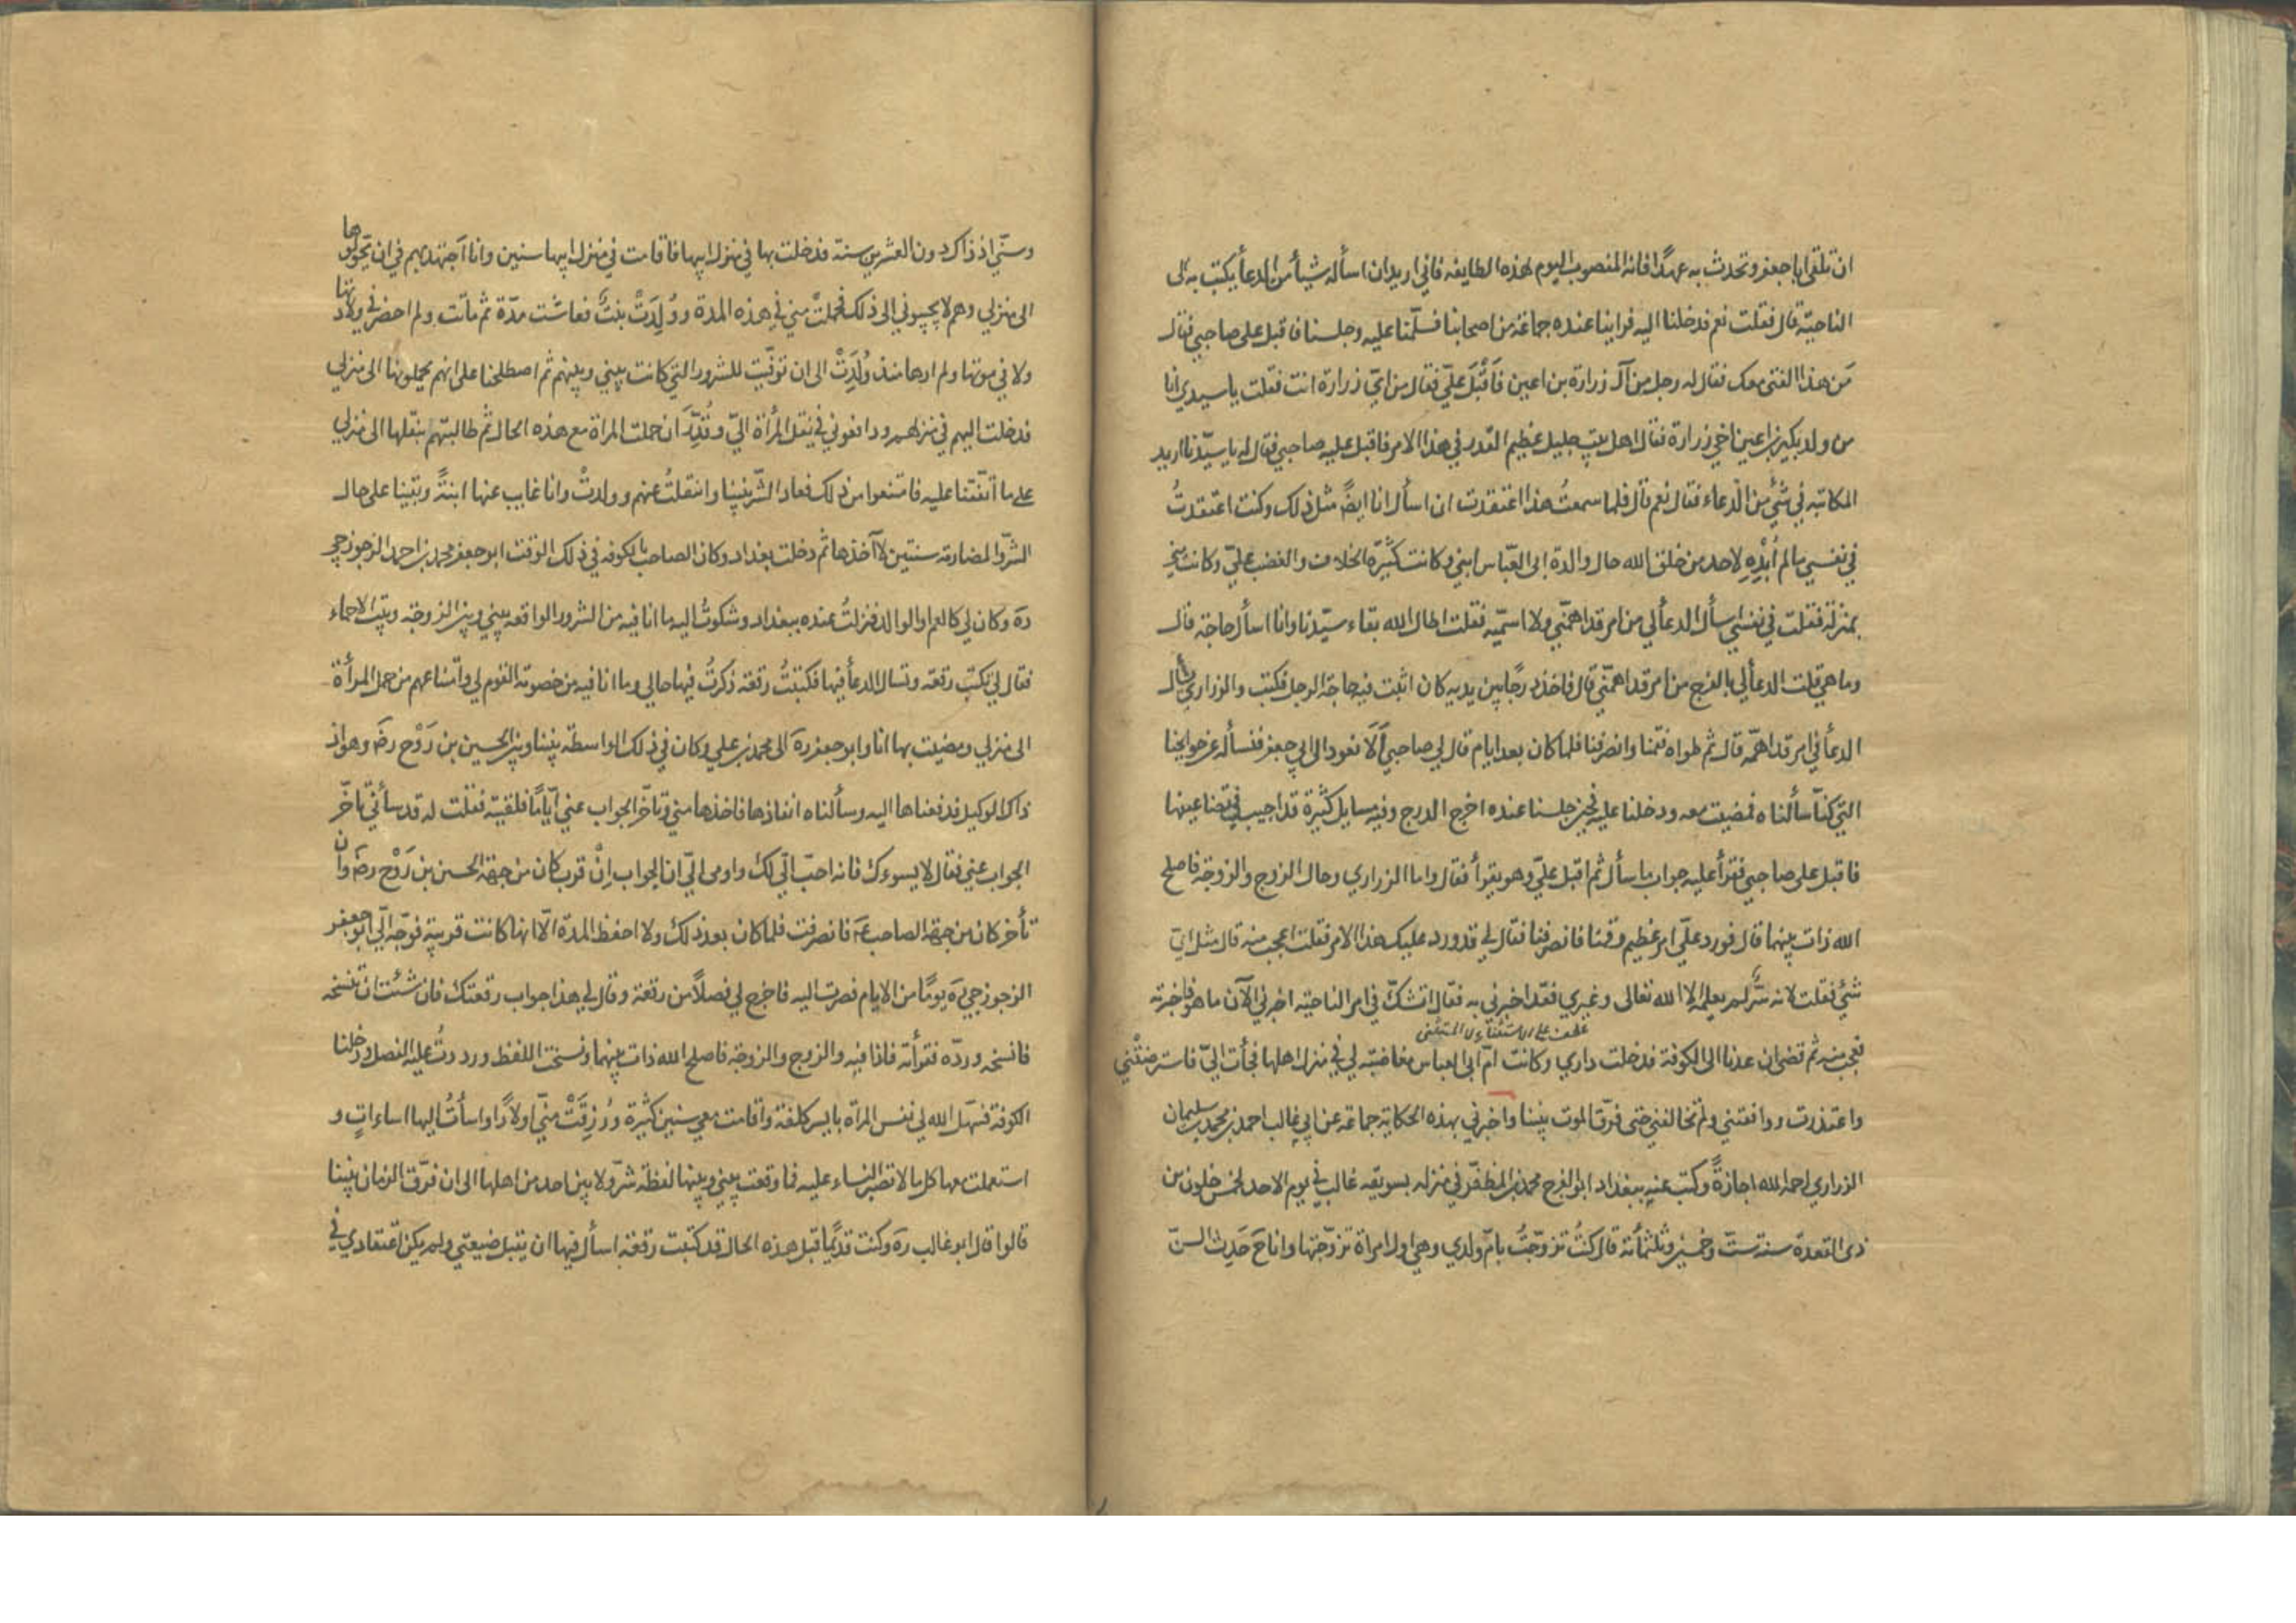 ان تلقى ابا جعفر وتحدث به عهدًا فانه المنصوب اليوم لهذه الطايفه فاني اريد ان اسأله شيأ من الدعأ يكتب به الى
الناحيّة قال فقلت نعم فدخلنا اليه فراينا عنده جماعة من اصحابنا فسلّمنا عليه وجلسنا فاقبل على صاحبي فقال
مَن هذا الفتى معك فقال له رجل من آل زرارة بن اعين فأَقْبَلَ عليّ فقال من ايّ زرارة انت فقلت يا سيدي انا
من ولد بكير بن اعين اخي زرارة فقال اهل بيت جليل عظيم القدر في هذا الامر فاقبل عليه صاحبي فقال له يا سيّدنا اريد
المكاتبه في شئ من الدعاء فقال نعم قال فلما سمعتُ هذا اعتقدت ان اسأل انا ايضًا مثل ذلك وكنت اعتقدتُ
في نفسي ما لم أُبْدِهِ لاحد من خلق الله حال والدة ابى العبّاس ابني وكانت كثيرة الخلاف والغضب عليّ وكانت منّي
بمنزلة فقلت في نفسي اسأل الدعأ لي من امر قد اهمّني ولا اسمّيه فقلت اطال الله بقاء سيّدنا وانا اسأل حاجة قال
وما هي قلت الدعأ لي بالفرج من امر قد اهمّني قال فاخذ درجًا بين يديه كان اثبت فيه حاجة الرجل فكتب والزراري يسأل
الدعأ في امر قد اهمّه قال ثم طواه فقمنا وانصرفنا فلما كان بعد ايام قال لي صاحبي أَلَا نعود الى ابي جعفر فنسأله عن حوايجنا
التي كنّا سألناه فمضيت معه ودخلنا عليه فحين جلسنا عنده اخرج الدرج وفيه مسايل كثيرة قد اجيب في تضاعيفها
فاقبل على صاحبي فقرأ عليه جواب ما سأل ثم اقبل عليّ وهو يقرأ فقال واما الزراري وحال الزوج والزوجة فاصلح
الله ذات بينهما قال فورد علىّ امر عظيم وقمنا فانصرفنا فقال لي قد ورد عليك هذا الامر فقلت اعجب منه قال مثل اي
شئ فقلت لانه سرّ لم يعلمه الا الله تعالى وغيري فقد اخبرني به فقال اتشكّ في امر الناحيّه اخبرني الآن ما هو فاخبرته
عطف على الاستثناء لا المستثنى
فعجب منه ثم قضى ان عدنا الى الكوفة فدخلت داري وكانت امّ ابي العباس مغاضبة لي في منزل اهلها فجأت اليّ فاسترضَتْني
واعتذرت ووافقتني ولم تخالفني حتى فرّق الموت بيننا واخبرني بهذه الحكاية جماعة عن ابي غالب احمد بن محمد بن سليمان
الزراري رحمه الله اجازةً وكتب عنه ببغداد ابو الفرج محمد بن المظفّر في منزله بسويقه غالب في يوم الاحد لخمس خلون من
ذى القعدة سنة ستّ وخمسين وثلثمأئة قال كنتُ تزوّجتُ بامّ ولدي وهي اول امراة تزوّجتها وانا ح حَدِث السنّ
وسنّي اذ ذاك دون العشرين سنة فدخلت بها في منزل ابيها فاقامت في منزل ابيها سنين وانا أجتهد بهم في ان يحوّلوها
الى منزلي وهم لا يجيبوني الى ذلك فحملتْ مني في هذه المدة ووُلِدَتْ بنتٌ فعاشت مدّة ثم ماتت ولم احضر في ولادتها
ولا في موتها ولم ارها منذ وُلِدَتْ الى ان توفّيت للشرور التي كانت بيني وبينهم ثم اصطلحنا على انهم يحملونها الى منزلي
فدخلت اليهم في منزلهم ودافعوني في نقل المرأة اليّ وقُدِّرَ ان حملت المراة مع هذه الحال ثم طالبتهم بنقلها الى منزلي
على ما اتّفقنا عليه فامتنعوا من ذلك فعاد الشر بيننا وانتقلتُ عنهم وولدتْ وانا غايب عنها ابنتةً وبقينا على حال
الشرّ والمضارمة سنتين لا آخذها ثم دخلت بغداد وكان الصاحب بالكوفه في ذلك الوقت ابو جعفر محمد بن احمد الزجوزجي
ره وكان لي كالعم او الوالد فنزلتُ عنده ببغداد وشكوتُ اليه ما انا فيه من الشرور الواقعة بيني وبين الزوجة وبين الاحماء
فقال لي تكتب رقعة وتسال الدعأ فيها فكتبتُ رقعة ذكرتُ فيها حالي وما انا فيه من خصومة القوم لي وامتناعهم من حمل المرأة
الى منزلي ومضيت بها انا وابو جعفر ره الى محمد بن علي وكان في ذلك الواسطة بيننا وبين الحسين بن رَوْح رضَ وهو اذ
ذاك الوكيل فدفعناها اليه وسألناه انفاذها فاخذها مني وتاخّر الجواب عني أيّامًا فلقيته فقلت له قد سأني تاخّر
الجواب عني فقال لا يسوءك فانه احبّ اليّ لك واومى اليّ ان الجواب اِنْ قرب كان من جهة الحسين بن رَوْح رضَ وان
تأخر كان من جهة الصاحب عَ فانصرفت فلما كان بعد ذلك ولا احفظ المدّة الّا انها كانت قريبة فوجّه اليّ ابو جعفر
الزجوزجي رَه يومًا من الايام فصرت اليه فاخرج لي فصلًا من رقعة وقال لي هذا جواب رقعتك فان شئت ان تنسخه
فانسخه وردّه فقرأته فاذا فيه والزوج والزوجة فاصلح الله ذات بينهما ونسختُ اللفظ ورددتُ عليه الفصل ودخلنا
الكوفة فسهّل الله لي نفس المرأة بايسر كلفة واقامت معي سنين كثيرة ورُزِقَتْ منّي اولادًا واسأتُ اليها اساءاتٍ و
استعملت معها كل ما لا تصبر النساء عليه فما وقعت بيني وبينها لفظة شرّ ولا بين احد من اهلها الى ان فرّق الزمان بيننا
قالوا قال ابو غالب ره وكنت قديمًا قبل هذه الحال قد كتبت رقعة اسأل فيها ان يقبل ضيعتي ولم يكن اعتقادي في